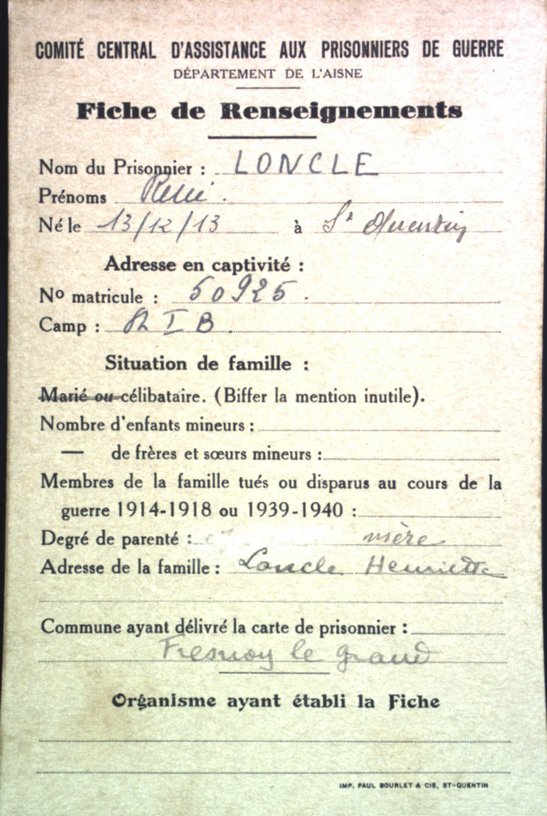 COMITÉ CENTRAL D'ASSISTANCE AUX PRISONNIERS DE GUERRE
DÉPARTEMENT DE L'AISNE
Fiche de Renseignements
Nom du Prisonnier : LONCLE
Prénoms René.
Né le 13/12/13 à St Quentin
Adresse en captivité :
No matricule : 50925.
Camp : II B.
Situation de famille :
Marié ou célibataire. (Biffer la mention inutile).
Nombre d'enfants mineurs :
— de frères et sœurs mineurs :
Membres de la famille tués ou disparus au cours de la
guerre 1914-1918 ou 1939-1940 :
Degré de parenté : mère
Adresse de la famille : Loncle Henriette
Commune ayant délivré la carte de prisonnier :
Fresnoy le grand
Organisme ayant établi la Fiche
IMP. PAUL BOURLET & CIE, ST-QUENTIN